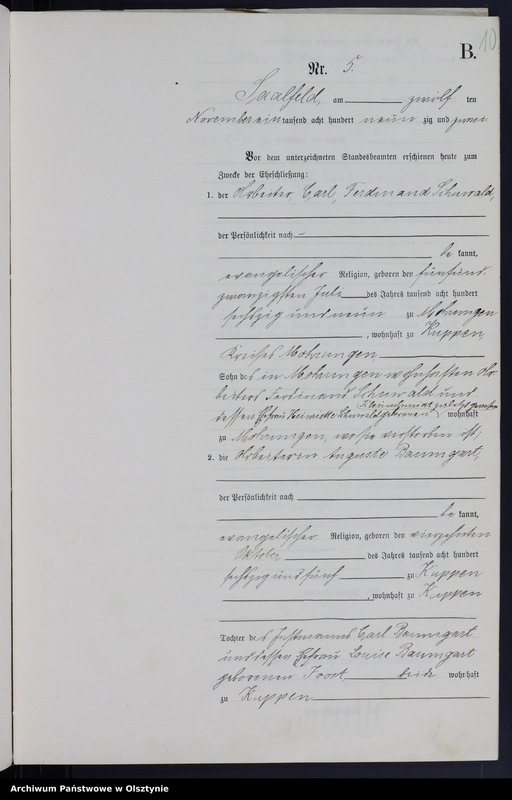 B. 10
Nr. 5.
Saalfeld, am zwölf ten
November ein tausend acht hundert neun zig und zwei
Vor dem unterzeichneten Standesbeamten erschienen heute zum
Zwecke der Eheschließung:
1. der Arbeiter, Carl, Ferdinand Schuwald,
der Persönlichkeit nach
be kannt,
evangelischer Religion, geboren den fünfund
zwanzigsten Juli des Jahres tausend acht hundert
sechszig und neun zu Mohrungen
, wohnhaft zu Kuppen,
Kreises Mohrungen
Sohn des in Mohrungen wohnhaften Ar-
beiters Ferdinand Schuwald und
dessen Ehefrau Henriette Schuwald geborenen wohnhaft
zu Mohrungen, wo sie verstorben ist,
2. die Arbeiterin Auguste Baumgart,
der Persönlichkeit nach
be kannt,
evangelischer Religion, geboren den vierzehnten
Oktober des Jahres tausend acht hundert
sechszig und fünf zu Kuppen
, wohnhaft zu Kuppen
Tochter des Instmanns Carl Baumgart
und dessen Ehefrau Louise Baumgart
geborenen Joost beide wohnhaft
zu Kuppen
Archiwum Państwowe w Olsztynie